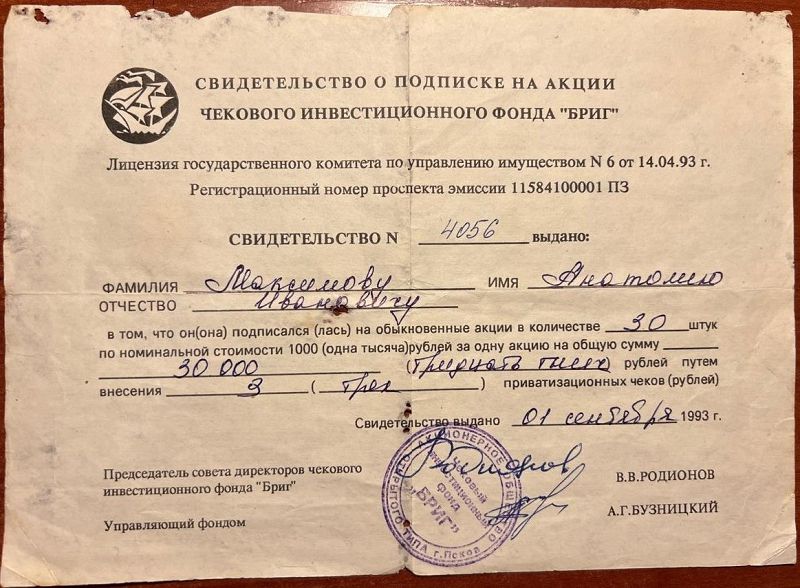 СВИДЕТЕЛЬСТВО О ПОДПИСКЕ НА АКЦИИ
ЧЕКОВОГО ИНВЕСТИЦИОННОГО ФОНДА "БРИГ"
Лицензия государственного комитета по управлению имуществом N 6 от 14.04.93 г.
Регистрационный номер проспекта эмиссии 11584100001 ПЗ
СВИДЕТЕЛЬСТВО N 4056 выдано:
ФАМИЛИЯ Максимову ИМЯ Анатолию
ОТЧЕСТВО Ивановичу
в том, что он(она) подписался (лась) на обыкновенные акции в количестве 30 штук
по номинальной стоимости 1000 (одна тысяча)рублей за одну акцию на общую сумму
30 000 (тридцать тысяч) рублей путем
внесения 3 (трех) приватизационных чеков (рублей)
Свидетельство выдано 01 сентября 1993 г.
Председатель совета директоров чекового
инвестиционного фонда "Бриг"
В.В.РОДИОНОВ
Управляющий фондом
А.Г.БУЗНИЦКИЙ
АКЦИОНЕРНОЕ ОБЩЕСТВО ОТКРЫТОГО ТИПА г. Псков
Чековый
инвестиционный
фонд
"БРИГ"